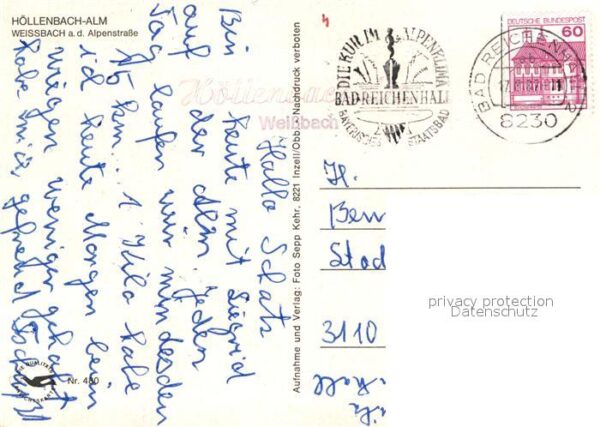 HÖLLENBACH-ALM
WEISSBACH a.d. Alpenstraße
Hallo Schatz
Bin heute mit Siegrid
auf der Alm jeden
Tag laufen wir mindesden
15 km... 1 Kilo habe
ich heute Morgen beim
wiegen weniger gehabt
habe mich gefreut
Nr. 480
Aufnahme und Verlag: Foto Sepp Kehr, 8221 Inzell/Obb. Nachdruck verboten
Höllenbach
Weißbach
DIE KUR IM ALPENKLIMA
BAD REICHENHALL
BAYERISCHES STAATSBAD
BAD REICHENHALL
8230
DEUTSCHE BUNDESPOST
60
H.
Stad
3110
privacy protection
Datenschutz